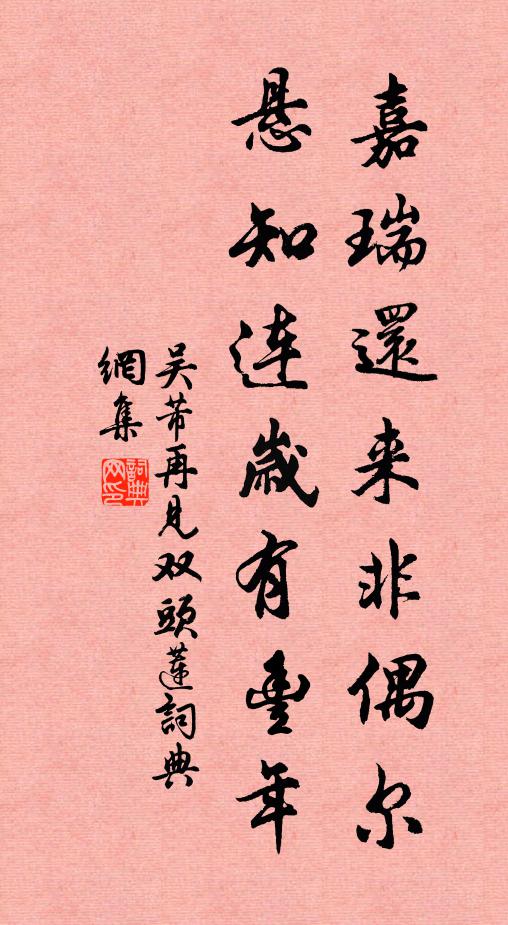 嘉瑞還来非偶尔
悬知連歲有豐年
吴芾再見双頭蓮詞典
網集
詞典网印